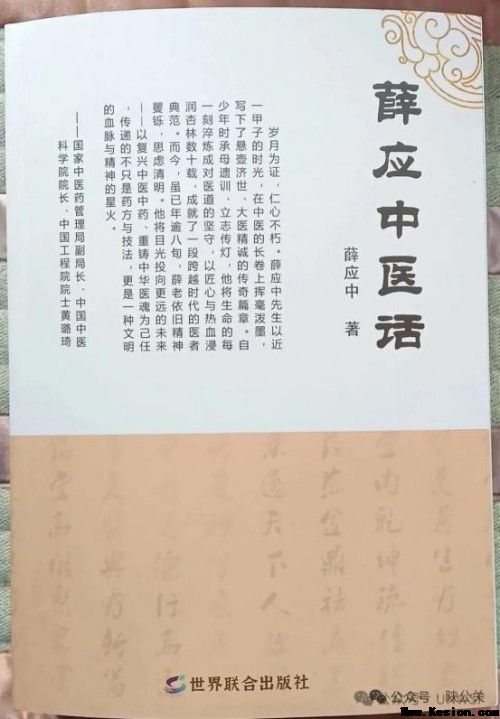 薛应中医话
薛应中 著
岁月为证，仁心不朽。薛应中先生以近
一甲子的时光，在中医的长卷上挥毫泼墨，
写下了悬壶济世、大医精诚的传奇篇章。自
少年时承母遗训、立志传灯，他将生命的每
一刻淬炼成对医道的坚守，以匠心与热血浸
润杏林数十载，成就了一段跨越时代的医者
典范。而今，虽已年逾八旬，薛老依旧精神
矍铄，思虑清明。他将目光投向更远的未来
——以复兴中医中药、重铸中华医魂为己任
，传递的不只是药方与技法，更是一种文明
的血脉与精神的星火。
——国家中医药管理局副局长、中国中医
科学院院长、中国工程院院士黄璐琦
世界联合出版社
公众号
Www.Kesion.com